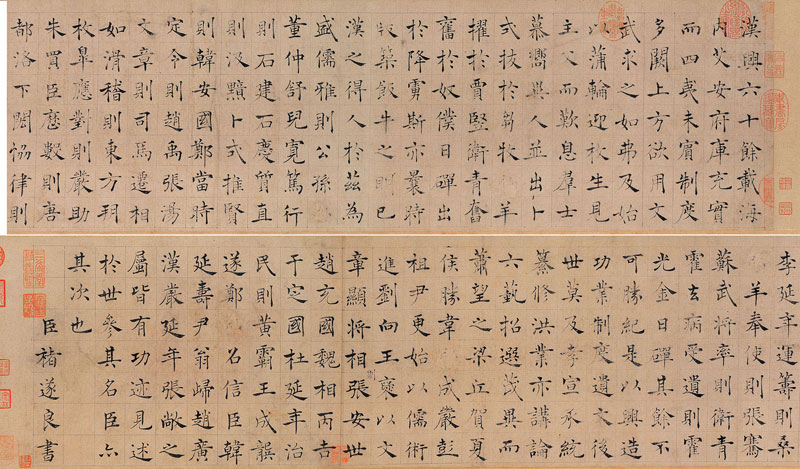 漢興六十餘載海
內艾安府庫充實
而四夷未賓制度
多闕上方欲用文
武求之如弗及始
以蒲輪迎枚生見
主父而歎息羣士
慕嚮異人並出卜
式拔於芻牧 羊
擢於賈豎衛青奮
奮於奴僕日磾出
於降虜斯亦曩時
版築飯牛之則已
漢之得人於茲為
盛儒雅則公孫
董仲舒兒寬篤行
則石建石慶質直
則汲黯卜式推賢
則韓安國鄭當時
定令則趙禹張湯
文章則司馬遷相
如滑稽則東方朔
枚皋應對則嚴助
朱買臣曆數則唐
都洛下閎協律則
李延年運籌則桑
羊奉使則張騫
蘇武將率則衛青
霍去病受遺則霍
光金日磾其餘不
可勝紀是以興造
功業制度遺文後
世莫及孝宣承統
纂修洪業亦講論
六藝招選茂異而
蕭望之梁丘賀夏
侯勝韋 成嚴彭
祖尹更始以儒術
進劉向王褒以文
章顯將相張安世
趙充國魏相丙吉
于定國杜延年治
民則黃霸王成龔
遂鄭 名信臣韓
延壽尹翁歸趙廣
漢嚴延年張敞之
屬皆有功迹見述
於世參其名臣亦
其次也
臣褚遂良書